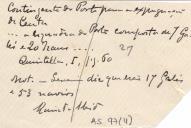 Contingente do Porto para a expugnação
de Ceuta
... a esquadra do Porto composta de 7 Ga
lés e 20 Naus ...
27
Quintella, 5, 1, 60
Not. - Senna diz que eram 17 Galés
e 53 navios
AS. 97(11)